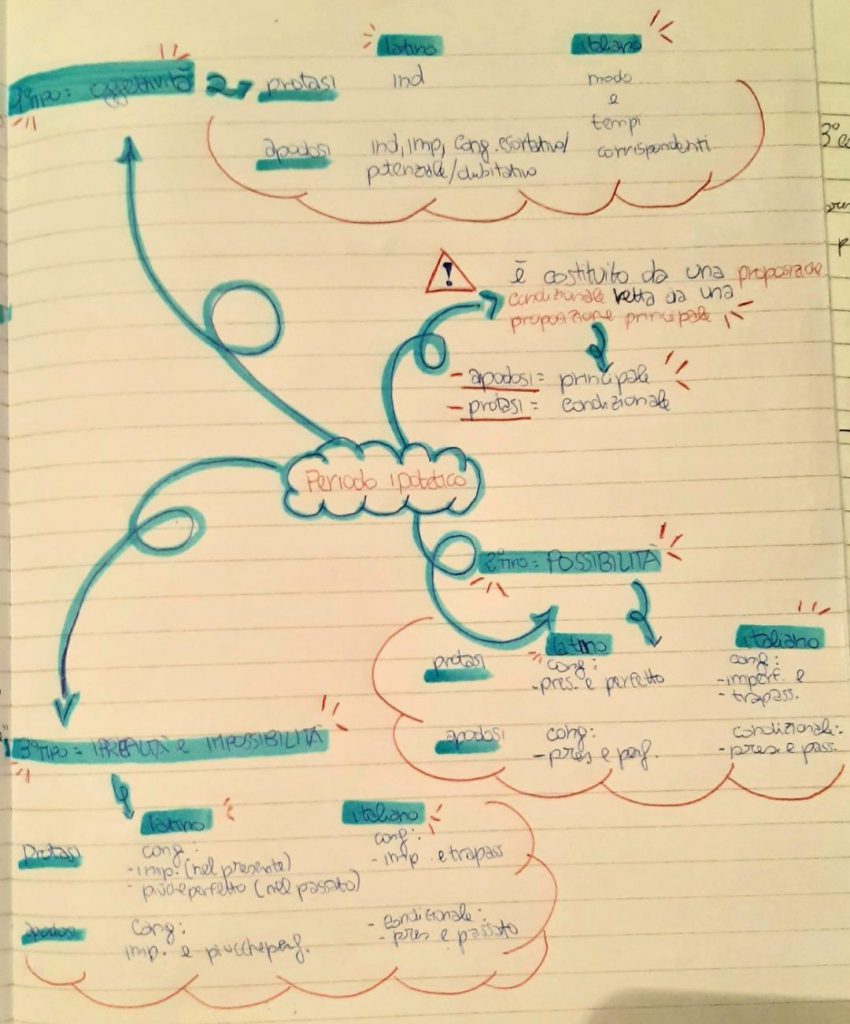 latino italiano
1° TIPO = oggettività
protasi ind modo
e
tempi
corrispondenti
apodosi ind, imp, cong. esortativo/
potenziale/dubitativo
!
è costituito da una proposizione
condizionale retta da una
proposizione principale
- apodosi = principale
- protasi = condizionale
Periodo ipotetico
2° TIPO = POSSIBILITÀ
latino italiano
protasi cong: cong:
- pres. e perfetto - imperf. e
- trapass.
apodosi cong: condizionale:
- pres e perf. - pres. e pass.
3° TIPO = IRREALTÀ e IMPOSSIBILITÀ
latino italiano
protasi cong: cong:
- imp. (nel presente) - imp. e trapass
- piucheperfetto (nel passato)
apodosi cong: - condizionale:
imp. e piuccheperf. - pres e passato
3°